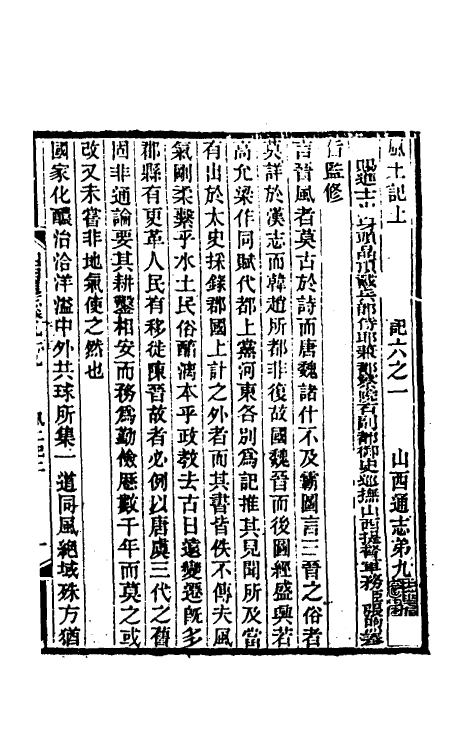 風土記上 記六之一 山西通志第九
賜進士出身頭品頂戴兵部侍郎兼都察院右副都御史巡撫山西提督軍務
監修
言晉風者莫古於詩而唐魏諸什不及霸圖言三晉之俗者
莫詳於漢志而韓趙所都非復故國魏晉而後圖經盛興若
高允梁作同賦代都上黨河東各別為記推其見聞所及當
有出於太史採錄郡國上計之外者而其書皆佚不傳夫風
氣剛柔繫乎水土民俗醕漓本乎政教去古日遠變遷旣多
郡縣有更革人民有移徙陳晉故者必例以唐虞三代之舊
固非通論要其耕鑿相安而務為勤儉歷數千年而莫之或
改又未嘗非地氣使之然也
國家化醲治洽洋溢中外共球所集一道同風絕域殊方猶